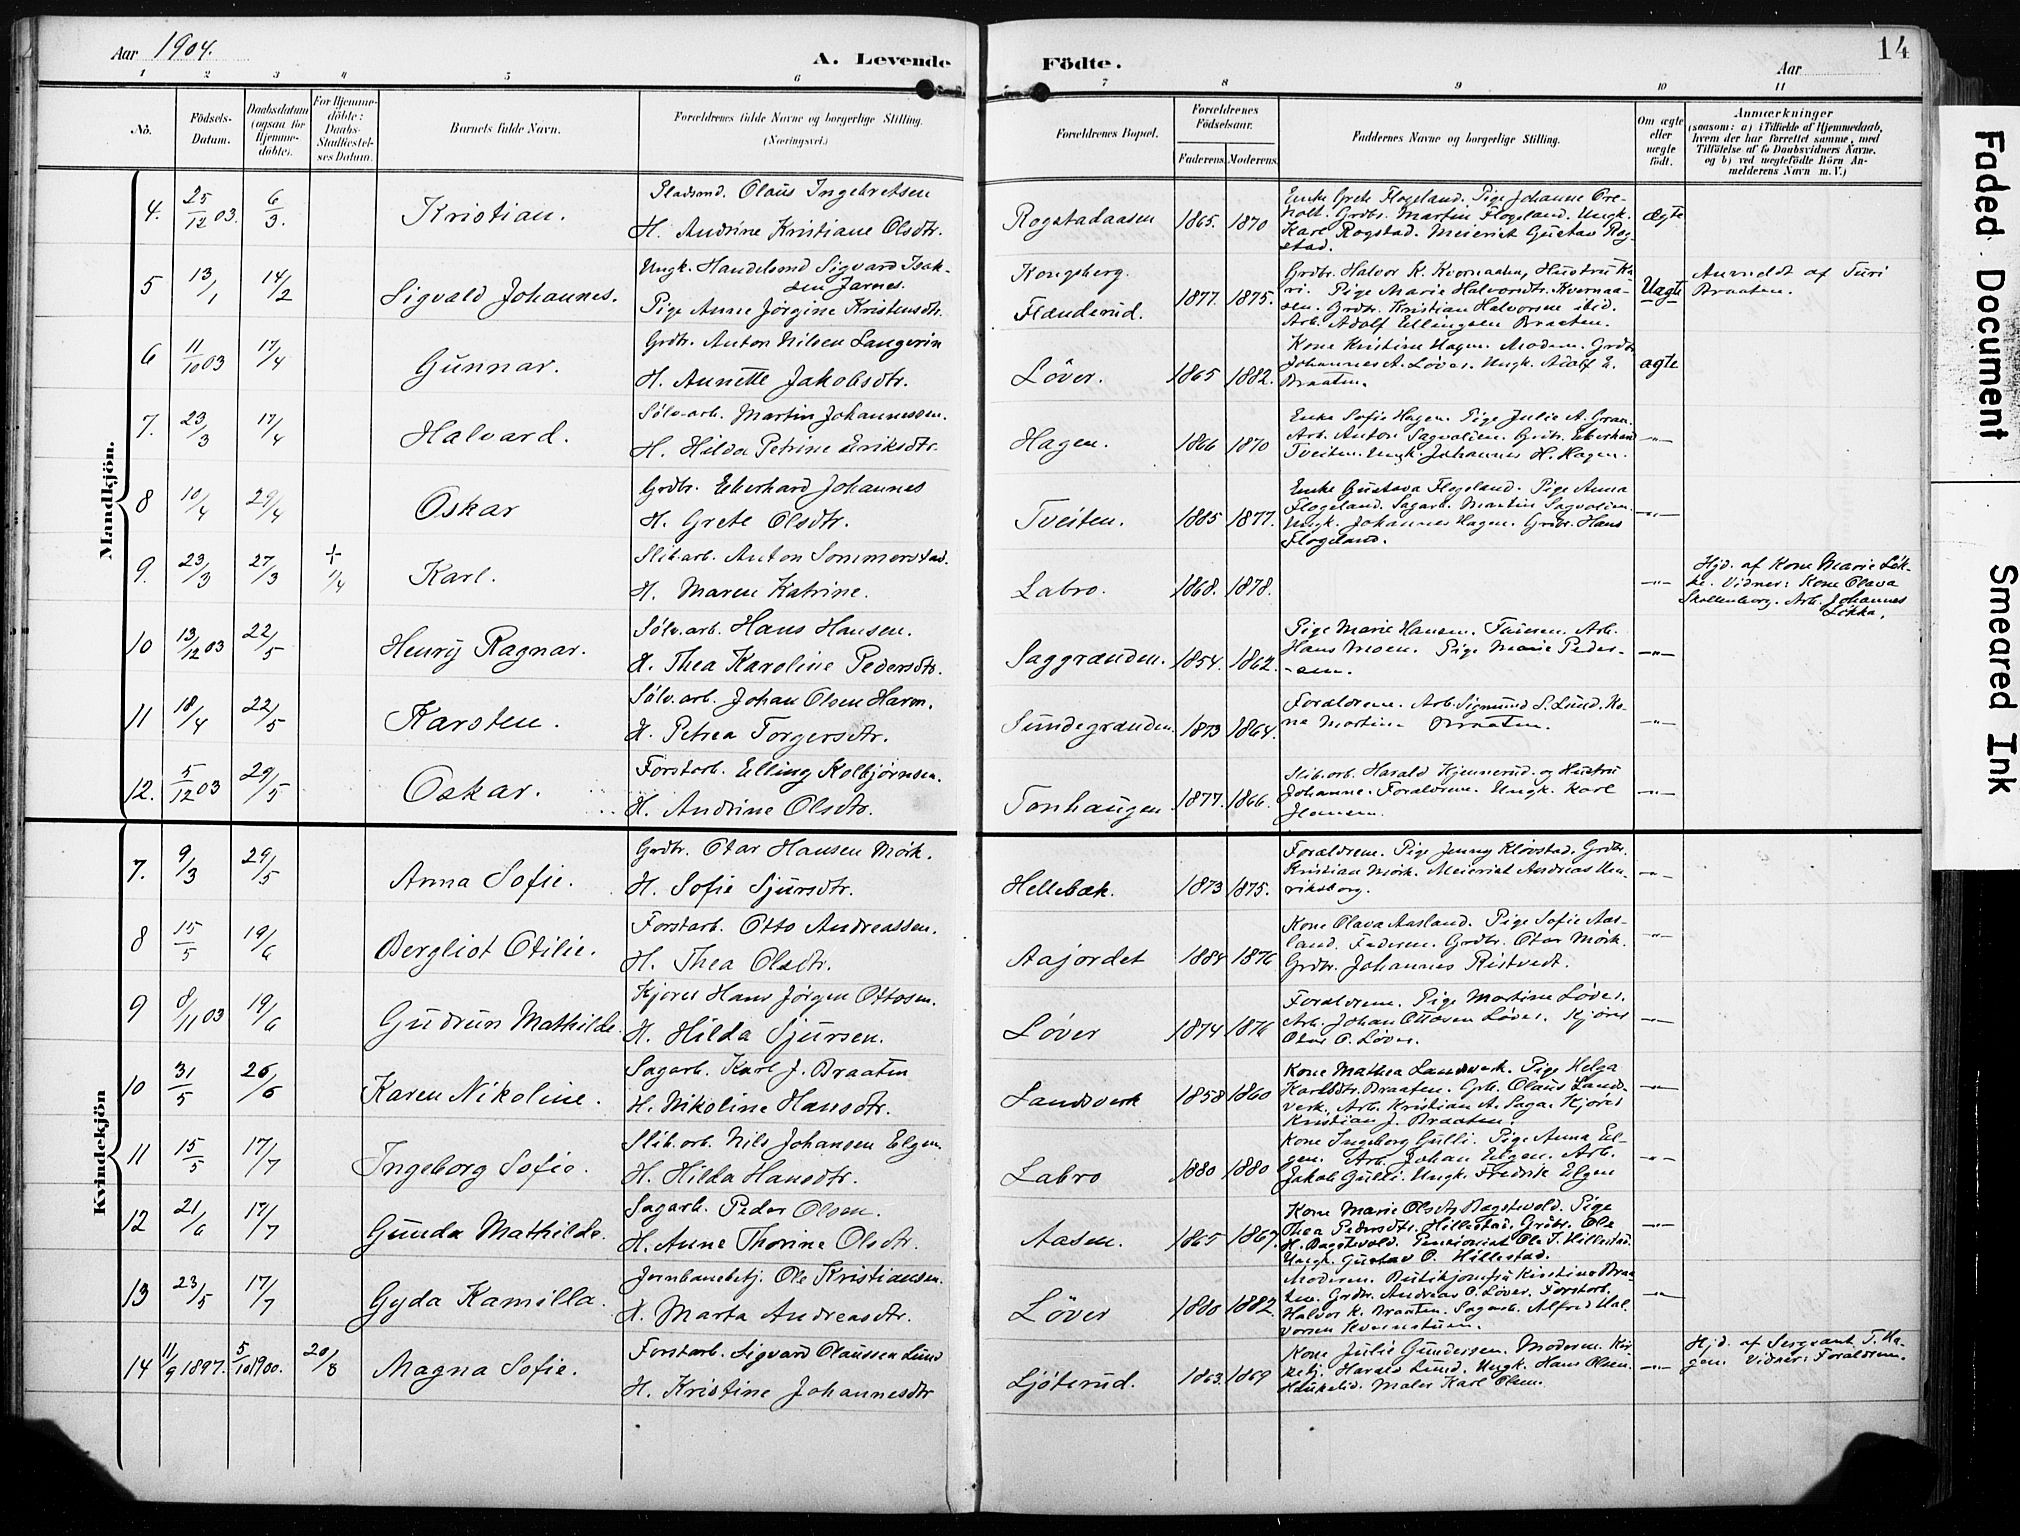 Aar 1904.
A. Levende Födte.
Aar
14
1 2 3 4 5 6 7 8 9 10 11
No.
Födsels-Datum.
Daabsdatum (ogsaa for Hjemme-döbte).
For Hjemme-döbte: Daabs-Stadfæstel-ses Datum.
Barnets fulde Navn.
Forældrenes fulde Navne og borgerlige Stilling. (Næringsvei.)
Forældrenes Bopæl.
Forældrenes Födselsaar.
Faderens. Moderens.
Faddernes Navne og borgerlige Stilling.
Om ægte eller uægte födt.
Anmærkninger
(saasom: a) i Tilfælde af Hjemmedaab, hvem der har forrettet samme, med Tilföielse af to Daabsvidners Navne, og b) ved uægtefödte Börn An-melderens Navn m. V.)
Mandkjön.
4. 25/12 03. 6/3. Kristian. Pladsmd. Olaus Ingebretsen
H. Andrine Kristiane Olsdtr. Rogstadaasen 1865. 1870 ægte
Enke Grete Flogeland. Pige Johanne Ore-
holt. Grdbr. Martin Flogeland. Ungk.
Karl Rogstad. Meierist Gustav Rog-
stad.
5 13/1 14/2 Sigvald Johannes. Ungk. Handelsmd Sigvard Isak-
sen Jarnes.
Pige Anne Jørgine Kristensdtr. Kongsberg. Flænderud. 1877. 1875. Uægte
Grdbr. Halvor K. Kvernaasen, Hustru Ka-
ri. Pige Marie Halvorsdtr. Kvernaa-
sen. Grdbr. Kristian Halvorsen ibid.
Arb. Adolf Ellingsen Braaten.
Anmeldt af Turi
Braaten.
6 11/10 03 17/4 Gunnar. Grdbr. Anton Nilsen Langerin
H. Annette Jakobsdtr. Løver. 1865 1882. ægte
Kone Kristine Hagen. Modern. Grdbr.
Johannes A. Løver. Ungk. Adolf E.
Braaten.
7. 23/3 17/4 Halvard. Sølv.arb. Martin Johannessen.
H. Hilda Petrine Eriksdtr. Hagen. 1866 1870 -"-
Enke Sofie Hagen. Pige Julie A. Gran.
Arb. Anton Sagvolden. Grdbr. Eberhard
Tveiten. Ungk. Johannes H. Hagen.
8 10/4 29/4 Oskar Grdbr. Eberhard Johannes
H. Grete Olsdtr. Tveiten. 1885 1877. -"-
Enke Gustava Flogeland. Pige Anna
Flogeland. Sagarb. Martin Sagvolden.
Ungk. Johannes Hagen. Grdbr. Hans
Flogeland.
9. 23/3 27/3 + 1/4 Karl. Slib.arb. Anton Sommerstad.
H. Maren Katrine. Labro. 1868. 1878. -"-
Hjd. af Kone Marie Løk-
ke. Vidner: Kone Olava
Skollenborg. Arb. Johannes
Løkka.
10 13/12 03 22/5 Henry Ragnar. Sølv.arb. Hans Hansen.
H. Thea Karoline Pedersdtr. Saggrænden. 1854. 1862. -"-
Pige Marie Hansen. Faderen. Arb.
Hans Moen. Pige Marie Peder-
sen.
11 18/4 22/5 Karsten. Sølv.arb. Johan Olsen Harm.
H. Petrea Torgersdtr. Sundegrænden. 1873 1864. -"-
Forældrene. Arb. Sigmund S. Lund. Ko-
ne Martine Braaten.
12. 5/12 03 29/5 Oskar. Forstarb. Elling Kolbjørnsen.
H. Andrine Olsdtr. Tonhaugen 1877. 1866. -"-
Slib.arb. Harald Hjennerud og Hustru
Johanne. Forældrene. Ungk. Karl
Hansen.
Kvindekjön
7. 9/3 29/5 Anna Sofie. Grdbr. Otar Hansen Mørk.
H. Sofie Sjursdtr. Hellebæk. 1873 1875. -"-
Forældrene. Pige Jenny Kløvstad. Grdbr.
Kristian Mørk. Meierist Andreas Hen-
riksborg.
8 15/5 19/6 Bergliot Otilie. Forstarb. Otto Andreassen.
H. Thea Olsdtr. Aajordet 1884 1876 -"-
Kone Olava Aasland. Pige Sofie Aas-
land. Faderen. Grdbr. Otar Mørk.
Grdbr. Johannes Ristvedt.
9 8/11 03 19/6 Gudrun Mathilde. Kjører Hans Jørgen Ottosen.
H. Hilda Sjursen. Løver 1874 1876 -"-
Forældrene. Pige Martine Løver.
Arb. Johan Ottosen Løver. Kjører
Olaf O. Løver.
10 31/5 26/6 Karen Nikoline. Sagarb. Karl J. Braaten
H. Nikoline Hansdtr. Landsverk 1858 1860 -"-
Kone Mathea Landsverk. Pige Helga
Karlsdtr. Braaten. Grb. Olaus Lands-
verk. Arb. Kristian A. Saga. Kjører
Kristian J. Braaten.
11 15/5 17/7 Ingeborg Sofie. Slib.arb. Nils Johansen Elgen
H. Hilda Hansdtr. Labro 1880 1880 -"-
Kone Ingeborg Gulli. Pige Anna El-
gen. Arb. Johan Elgen. Arb.
Jakob Gulli. Ungk. Fredrik Elgen
12 21/6 17/7 Gunda Mathilde. Sagarb. Peder Olsen.
H. Anne Thorine Olsdtr. Aasen. 1865 1867. -"-
Kone Marie Olsdtr Bagstevold. Pige
Thea Pedersdtr. Hillestad. Grdbr. Ole
H. Bagstevold. Pensionist Ole T. Hillestad.
Ungk. Gustav O. Hillestad.
13 23/5 17/7 Gyda Kamilla. Jernbanebetj. Ole Kristiansen.
H. Marta Andreasdtr. Løver 1880 1882. -"-
Moderen. Butikjomfru Kirstine Braa-
ten. Grdbr. Andreas O. Løver. Forstarb.
Halvor K. Braaten. Sagarb. Alfred Hal-
vorsen
14 11/9 1897. 5/10 1900. 20/8 Magna Sofie. Forstarb. Sigvard Olaussen Lund
H. Kristine Johannesdtr Ljøterud. 1863. 1869 -"-
Kone Julie Gundersen. Moderen. Kir-
kebtj. Harald Lund. Ungk. Hans Olsen
Haukelid. Maler Karl Olsen.
Hjd. af Sergeant T. Ha-
gen. Vidner: Forældrene.
Faded Document
Smeared Ink